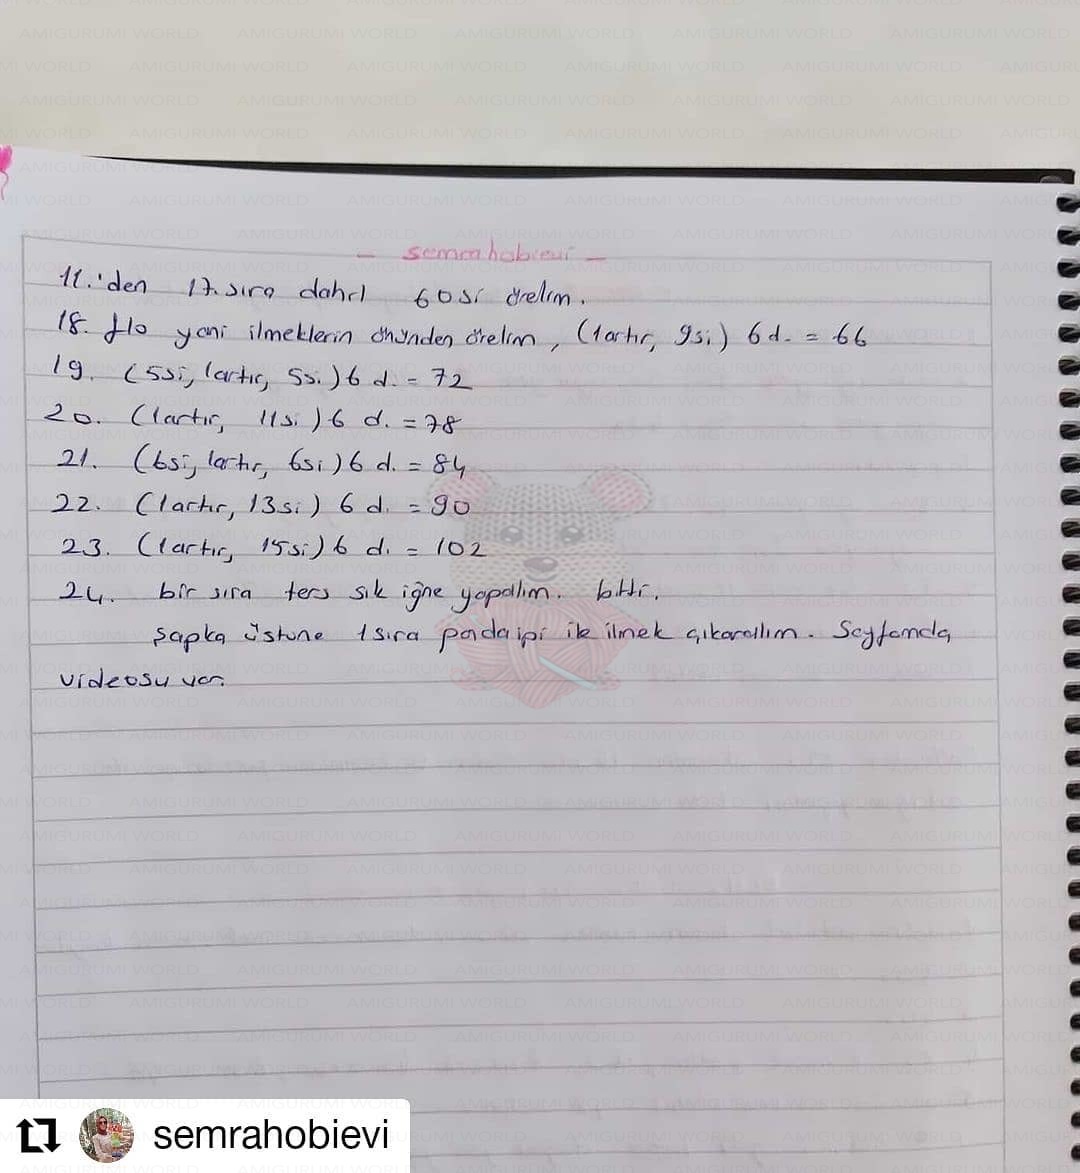 - semrahobievi -
11.'den 17. sıra dahil 60 si örelim.
18. flo yani ilmeklerin önünden örelim, (1artır, 9si) 6 d. = 66
19. (5si, 1artır, 5si) 6 d. = 72
20. (1artır, 11si) 6 d. = 78
21. (6si, 1artır, 6si) 6 d. = 84
22. (1artır, 13si) 6 d. = 90
23. (1artır, 15si) 6 d. = 102
24. bir sıra ters sık iğne yapalım. bitti.
Şapka üstüne 1 sıra ponda ipi ilmek çıkarallım. Sayfamda
videosu var.
AMIGURUMI WORLD
semrahobievi